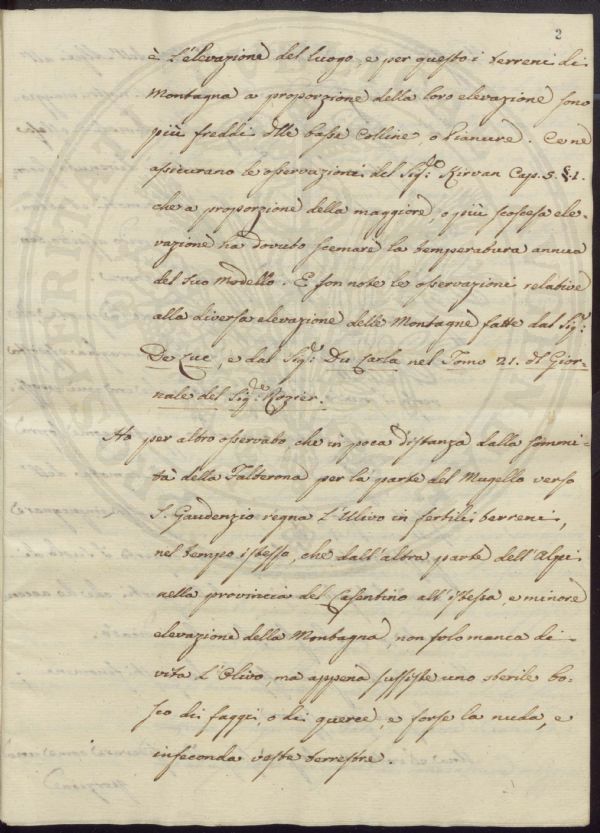 2
è l'elevazione del luogo, e per questo i terreni di
Montagna a proporzione della loro elevazione sono
più freddi dlle basse Colline o Pianure. Ce ne
assicurano le osservazioni del Sig.e Kirvan Cap. 5. §. 1.
che a proporzione della maggiore, o più scoscesa ele-
vazione ha dovuto scemare la temperatura annua
del suo Modello. E son note le osservazioni relative
alla diversa elevazione delle Montagne fatte dal Sig.r
De Luc, e dal Sig.r Du Carla nel Tomo 21. dl Gior-
nale del Sig.re Rozier.
Ho per altro osservato che in poca distanza dalla sommi-
tà della Falterona per la parte del Mugello verso
S. Gaudenzio regna l'Ulivo in fertili terreni,
nel tempo istesso, che dall'altra parte dell'Alpi
nella provincia del Casentino all'istessa, e minore
elevazione della Montagna, non solo manca di
vita l'Olivo, ma appena sussiste uno sterile bo-
sco di faggi, o di querce, e forse la nuda, e
infeconda veste terrestre.